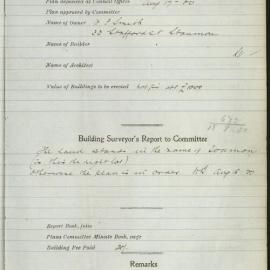 Plan deposited at Council Offices Aug 17 - 20
Plan approved by Committee
Name of Owner F J Smith
33 Stafford St Stanmore
Name of Builder
Name of Architect
Value of Buildings to be erected £1000
Building Surveyor's Report to Committee
The Land stands in the name of
(is this the right lot)
otherwise the plan is in order Aug 20
Report Book, folio
Plans Committee Minute Book, page
Building Fee Paid
Remarks